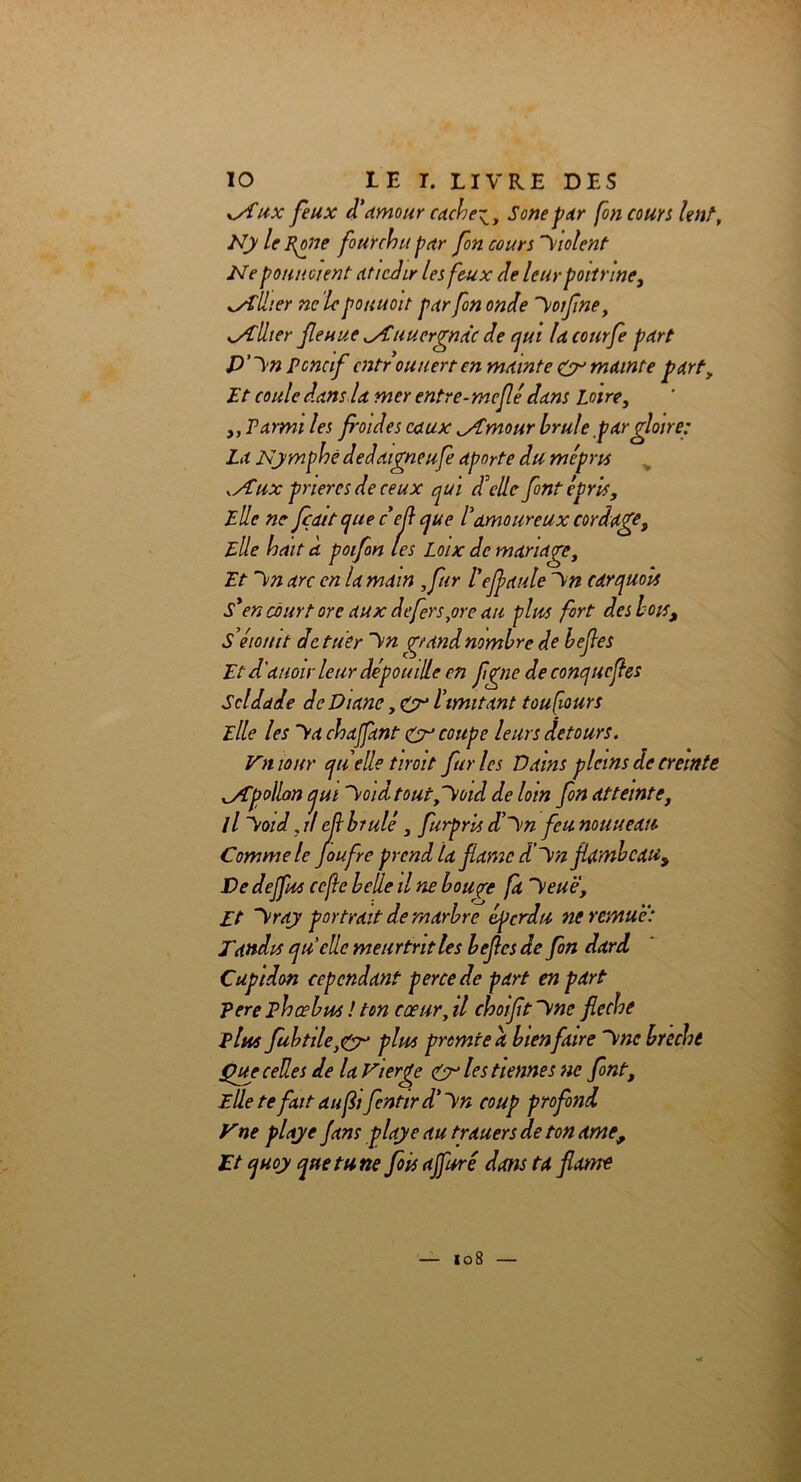 10 LE I. LIVRE DES
Aux feux d'amour cachez, Sone par ſon cours lent,
Ny le Rone fourchu par ſon cours violent
Ne pouuoient atiedir les feux de leur poitrine,
Allier ne le pouuoit par ſon onde voiſine,
Allier fleuue Auuergnac de qui la courſe part
D'vn Pencif entr'ouuert en mainte & mainte part,
Et coule dans la mer entre-meſlé dans Loire,
,,Parmi les froides eaux Amour brule par gloire:
La Nymphe dedaigneuſe aporte du mépris
Aux prieres de ceux qui d'elle ſont épris,
Elle ne ſçait que c'eſt que l'amoureux cordage,
Elle hait à poiſon les Loix de mariage,
Et vn arc en la main, ſur l'eſpaule vn carquois
S'en court ore aux deſers, ore au plus fort des bois,
S'éiouit de tuer vn grand nombre de beſtes
Et d'auoir leur dépouille en ſigne de conqueſtes
Soldade de Diane, & l'imitant touſiours
Elle les va chaſſant & coupe leurs detours.
Vn iour qu'elle tiroit ſur les Dains pleins de creinte
Apollon qui void tout, void de loin ſon atteinte,
Il void, il eſt brulé, ſurpris d'vn feu nouueau
Comme le ſoufre prend la flame d'vn flambeau,
De deſſus ceſte belle il ne bouge ſa veuë,
Et vray portrait de marbre éperdu ne remuë:
Tandis qu'elle meurtrit les beſtes de ſon dard
Cupidon cependant perce de part en part
Pere Phœbus! ton cœur, il choiſit vne fleche
Plus ſubtile, & plus promte à bien faire vne breche
Que celles de la Vierge & les tiennes ne ſont,
Elle te fait auſſi ſentir d'vn coup profond
Vne playe ſans playe au trauers de ton ame,
Et quoy que tu ne ſois aſſuré dans ta flame
— 108 —